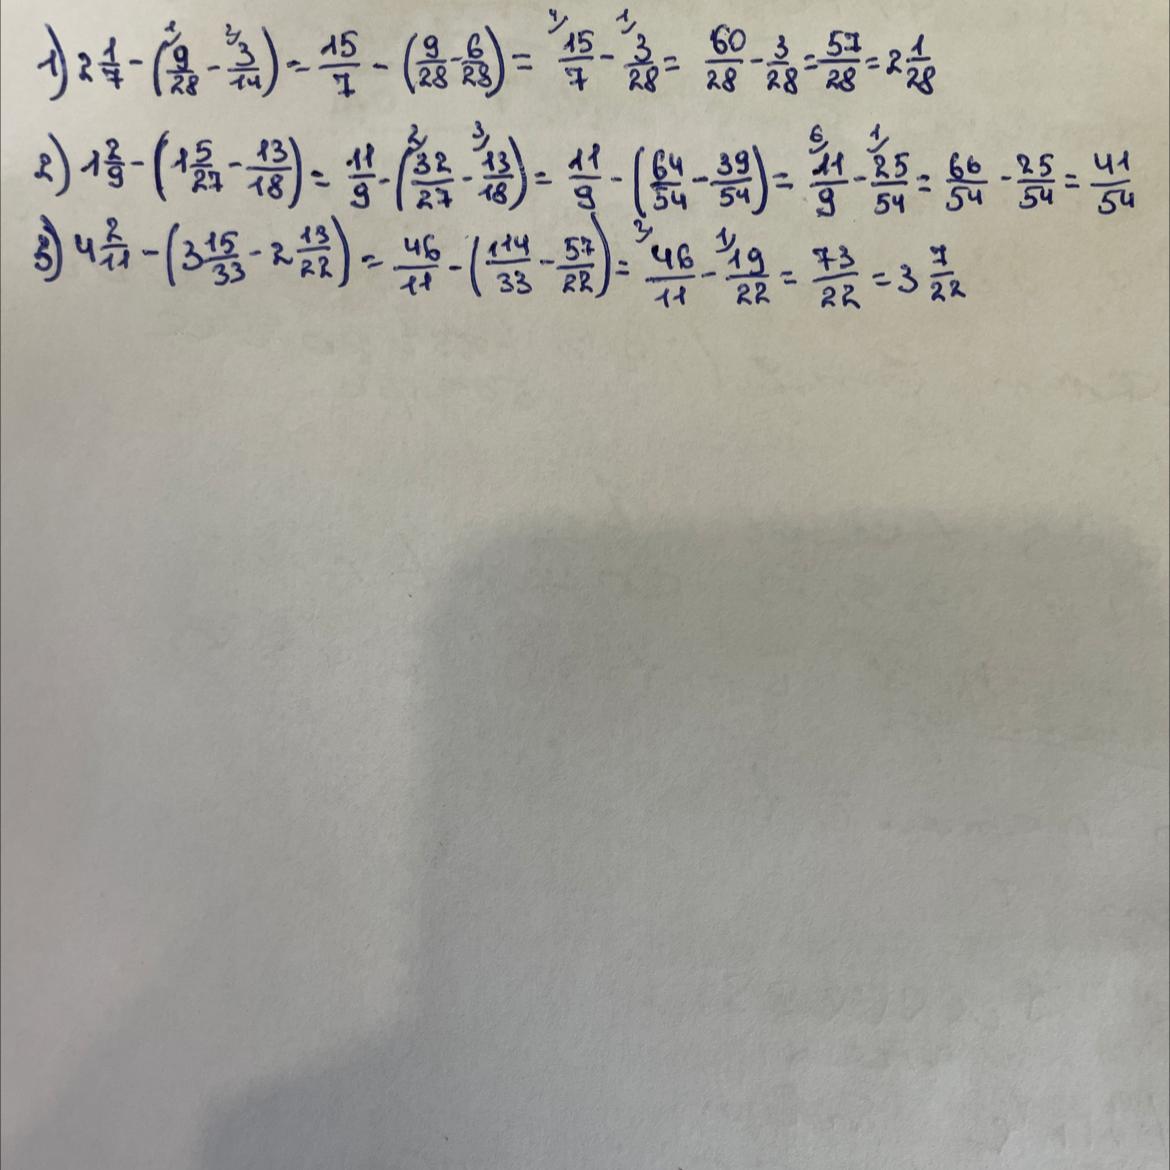 1) 2 1/7 - (9/28 - 3/14) = 15/7 - (9/28 - 6/28) = 15/7 - 3/28 = 60/28 - 3/28 = 57/28 = 2 1/28
2) 1 2/9 - (1 5/27 - 13/18) = 11/9 - (32/27 - 13/18) = 11/9 - (64/54 - 39/54) = 11/9 - 25/54 = 66/54 - 25/54 = 41/54
3) 4 2/11 - (3 15/33 - 2 13/22) = 46/11 - (114/33 - 57/22) = 46/11 - 19/22 = 73/22 = 3 7/22